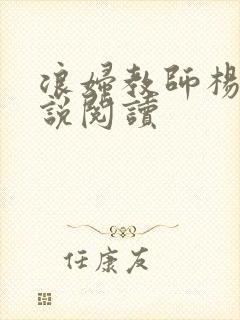 浪婦教師楊
說閱讀
任康友